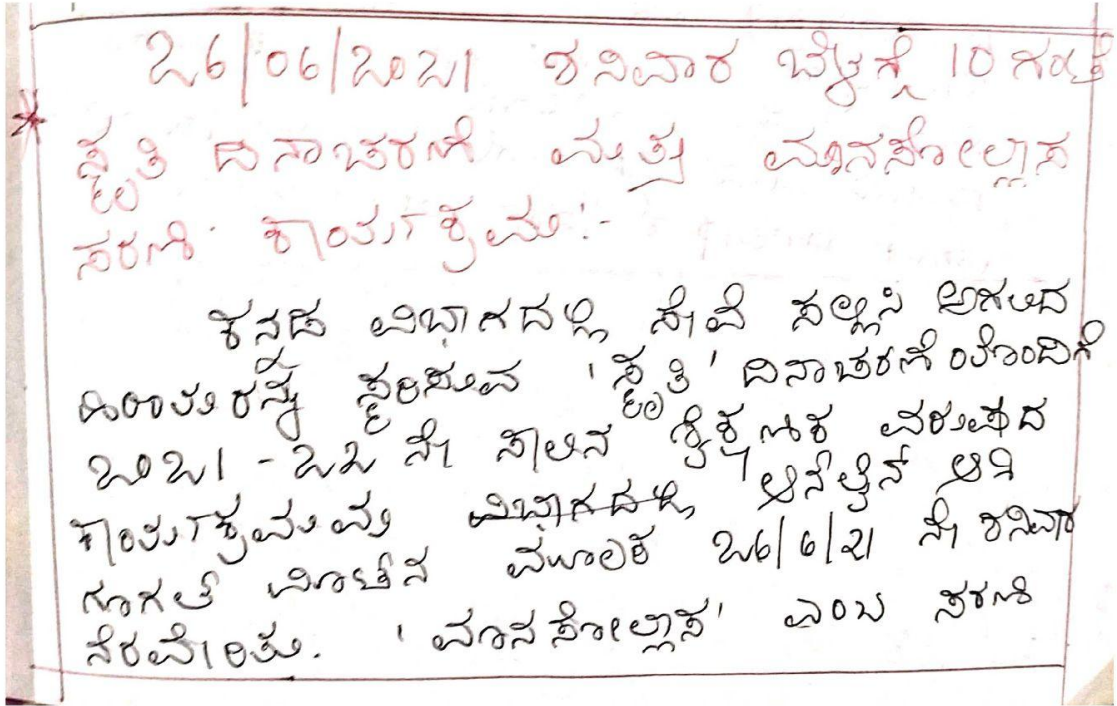 26/06/2021 ಶನಿವಾರ ಬೆಳಗ್ಗೆ 10 ಗಂಟೆ
ಸ್ಮೃತಿ ದಿನಾಚರಣೆ ಮತ್ತು ಮಾನಸೋಲ್ಲಾಸ
ಸರಣಿ ಕಾರ್ಯಕ್ರಮ:-
ಕನ್ನಡ ವಿಭಾಗದಲ್ಲಿ ಸೇವೆ ಸಲ್ಲಿಸಿ ಅಗಲಿದ
ಹಿರಿಯರನ್ನು ಸ್ಮರಿಸುವ 'ಸ್ಮೃತಿ' ದಿನಾಚರಣೆಯೊಂದಿಗೆ
2021-22 ನೇ ಸಾಲಿನ ಶೈಕ್ಷಣಿಕ ವರುಷದ
ಕಾರ್ಯಕ್ರಮವು ವಿಭಾಗದಲ್ಲಿ ಆನ್‌ಲೈನ್ ಆಗಿ
ಗೂಗಲ್ ಮೀಟ್‌ನ ಮೂಲಕ 26/6/21 ನೇ ಶನಿವಾರ
ನೆರವೇರಿತು. 'ಮಾನಸೋಲ್ಲಾಸ' ಎಂಬ ಸರಣಿ